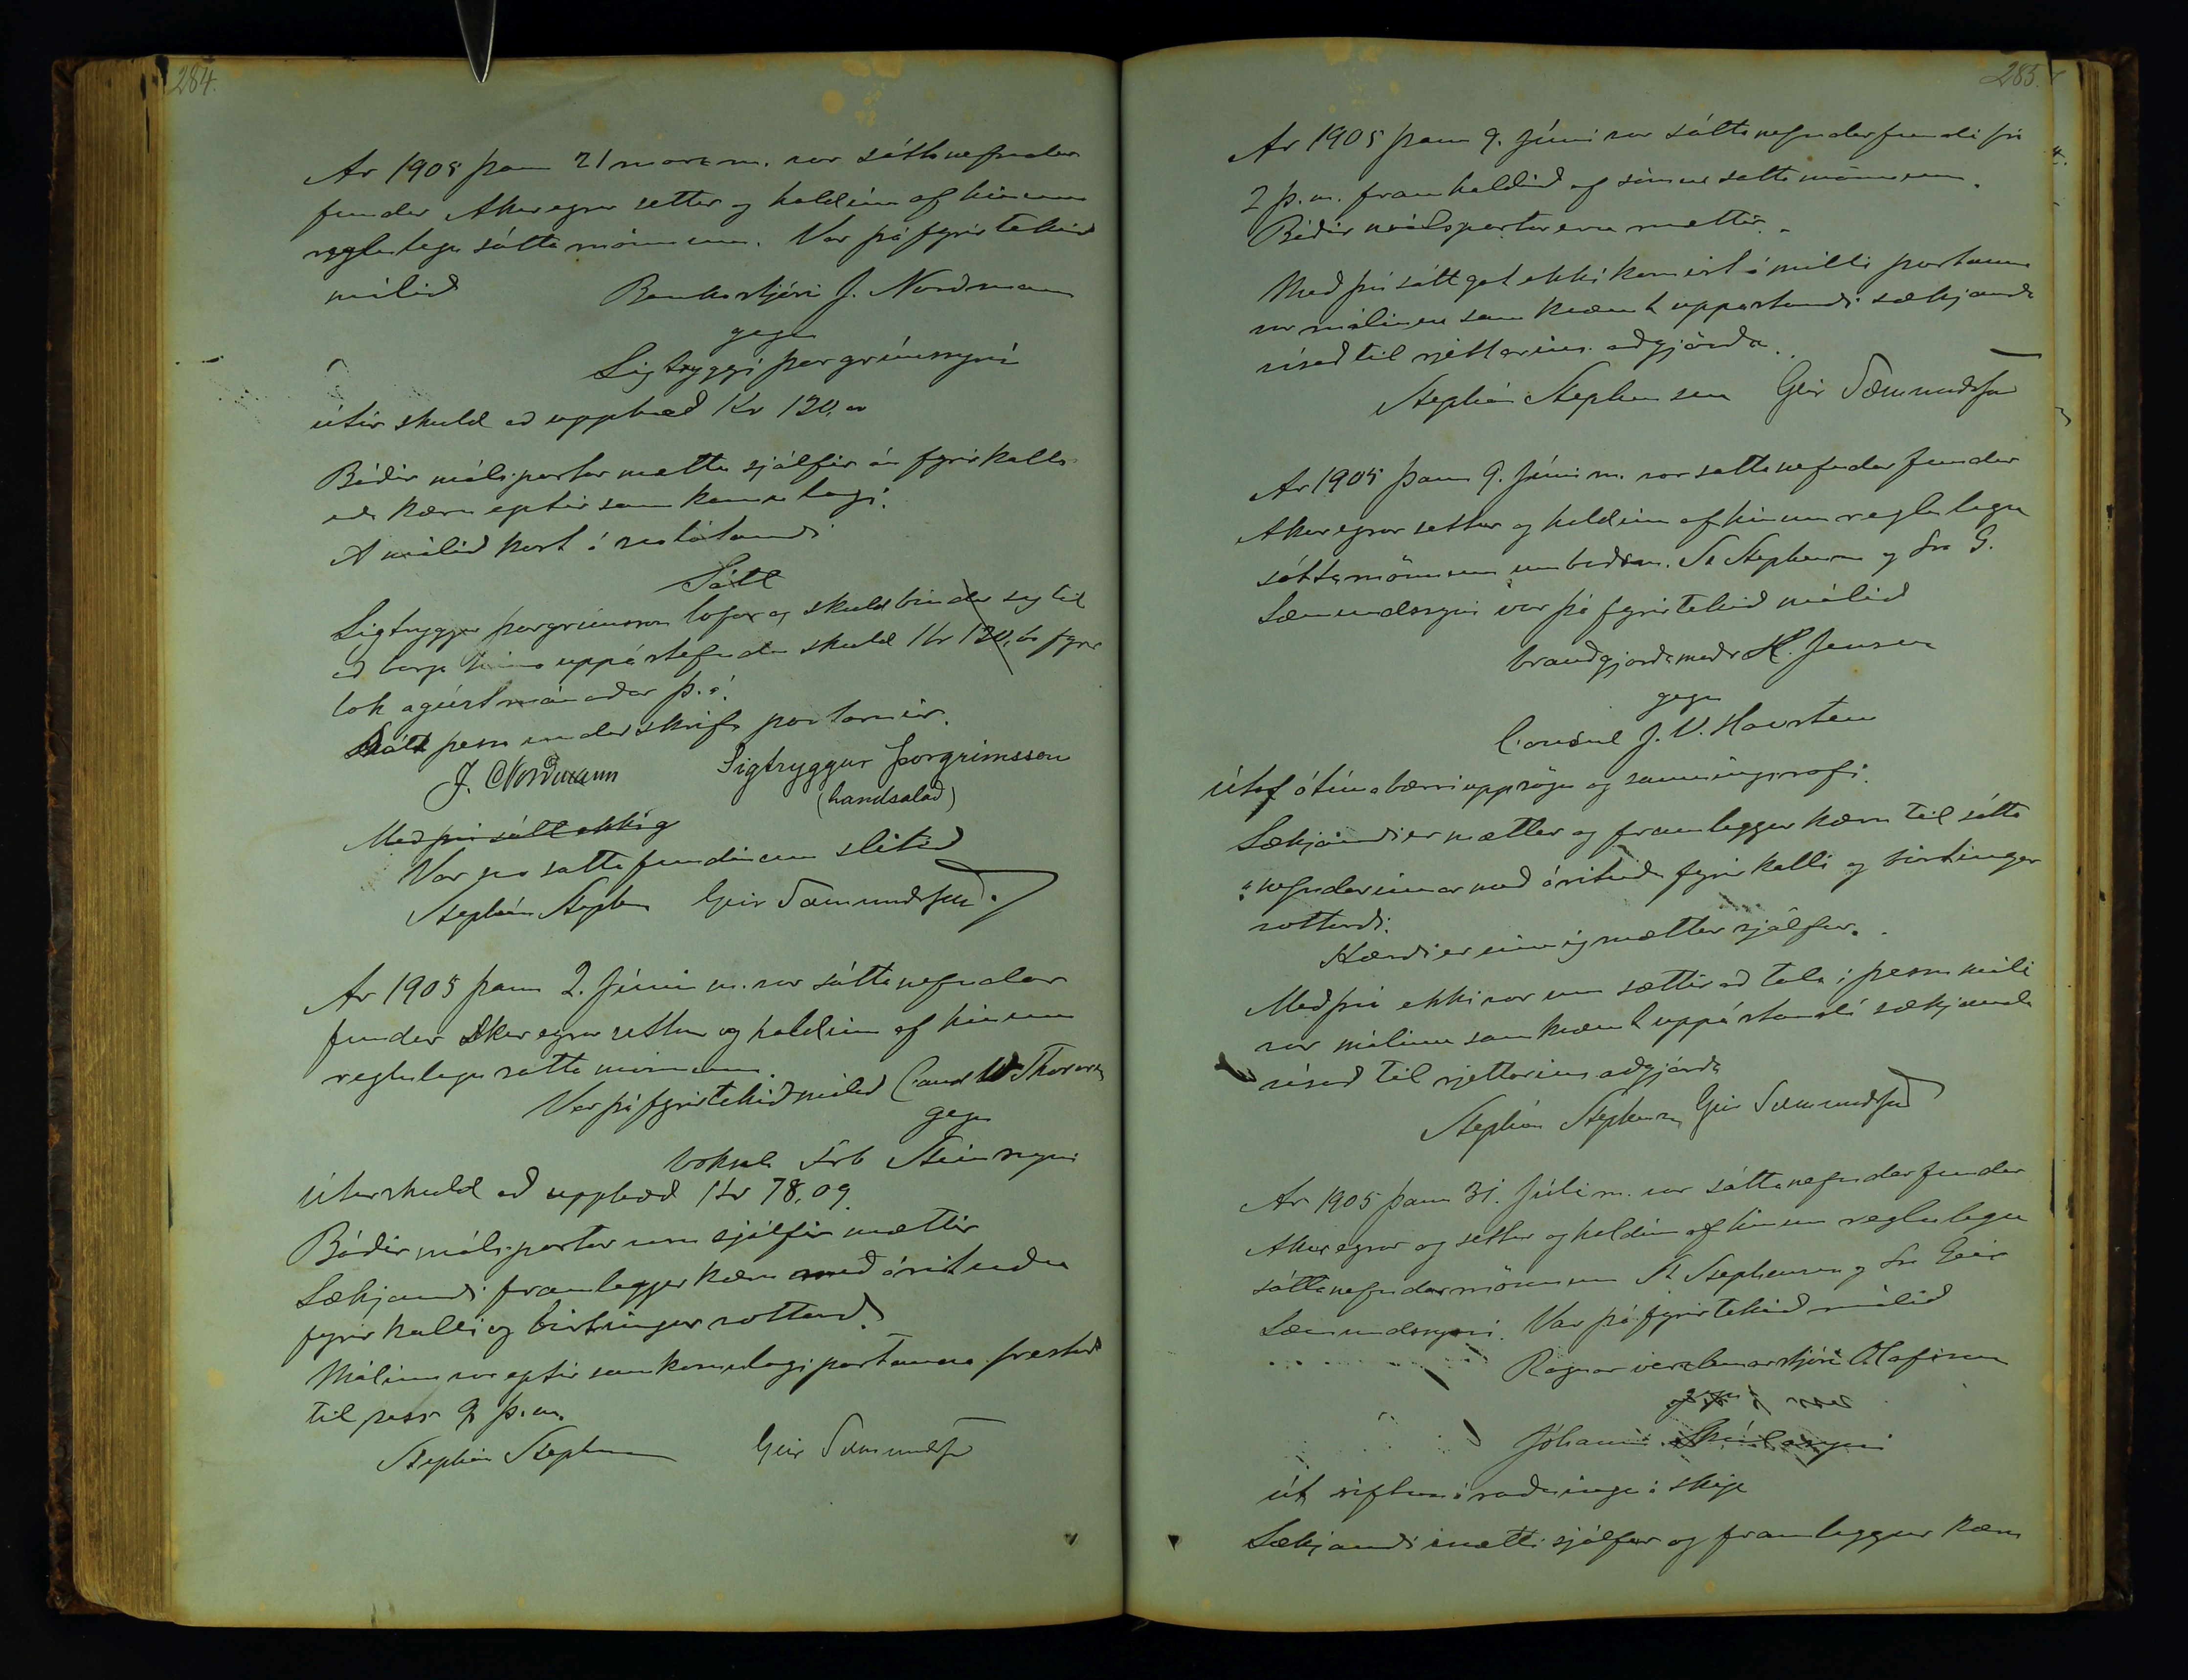 284.
Ár 1905 þann 21 marz m. var sáttanefndar
fundur Akureyrar settur og haldinn af hinum
reglulegu sáttamönnum. Var þá fyrirtekið
málið Bankastjóri J. Norðmann
gegn
Sigtryggi Þorgrímssyni
útúr skuld að upphæð Kr 120,00
Báðir málspartar mættu sjálfir án fyrirkalls
eða kæru eptir samkomulagi.
Á málið komst í svolátandi
Sátt
Sigtryggur Þorgrímsson lofar og skuldbindur sig til
að borga uppástefndu skuld Kr 120,00 fyrir
lok ágústmánaðar þ.á.
Sátt þessa underskrifa partarnir.
J. Norðmann Sigtryggur Þorgrimsson
(handsalað)
Með því sátt ekki g
Var svo sáttafundinum slitið
Stephán Stephensen Geir Sæmundsson
Ár 1905 þann 2. Júni m. var sáttanefndar
fundur Akureyrar settur og haldinn af hinum
reglulegu sáttamönnum.
Var þá fyrirtekið málið Cand. Thorarensen
gegn
Steinssyni
útúr skuld að upphæð Kr 78,09
Báðir málspartar eru sjálfir mættir
Sækjandi framleggur kæru með árituðu
fyrirkalli og birtingarvottorði.
Málinu var eptir samkomulagi partanna frestað
til þess 9 þ.m.
Stephán Stephensen Geir Sæmundsson
285.
Ár 1905 þann 9. Júni var sáttanefndarfundi frá
2 þ.m. framhaldið af sömu sáttamönnum.
Báðir málspartar eru mættir.
Með því sátt gat ekki komist á milli partanna
var málinu samkvæmt uppástandi sækjanda
vísað til rjettarins aðgjörða.
Stephán Stephensen Geir Sæmundsson
Ár 1905 þann 9. Júni m. var sáttanefndarfundur
Akureyrar settur og haldinn af hinum reglulegu
sáttamönnum St Stephensen og sra G.
Sæmundssyni var þá fyrirtekið málið
brauðgjörðamaðr H. Jensen
gegn
Consul J. V. Havsteen
útaf ótímabærri uppsögn og samningsrofi.
Sækjandi er mættur og framleggur kæru til sátta
nefndarinnar með árituðu fyrirkalli og birtingar
vottorði.
Kærði er einnig mættur sjálfur.
Með því ekki var um sættir að tala í þessu máli
var málinu samkvæmt uppástandi sækjanda
vísað til rjettarins aðgjörða
Stephán Stephensen Geir Sæmundsson
Ár 1905 þann 31. Júli m. var sáttanefndarfundur
Akureyrar og settur og haldinn af hinum reglulegu
sáttanefndarmönnum St Stephensen og sra Geir
Sæmundssyni. Var þá fyrirtekið málið
Ragnar verzlunarstjóri Ólafsson
gegn
Jóhanni Skúlasyni
út riftun á ráðningu í skip
Sækjandi mætti sjálfur og framleggur kæru